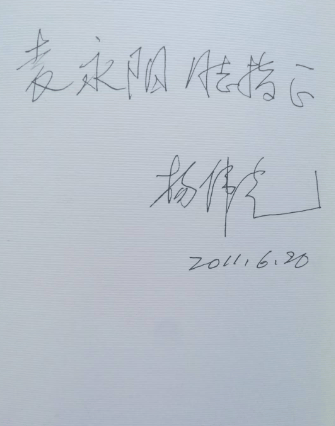 袁永阳同志指正
杨伟光
2011.6.20